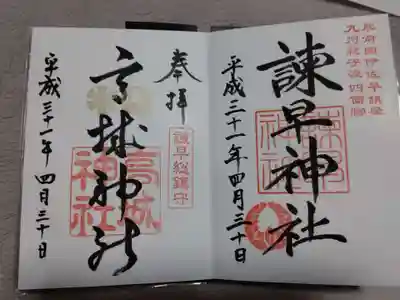 肥前國伊佐早鎮座
九州総守護四面宮
諫早神社
諫早神社
平成三十一年四月三十日
奉拝
諫早総鎮守
高城神社
高城神社
平成三十一年四月三十日